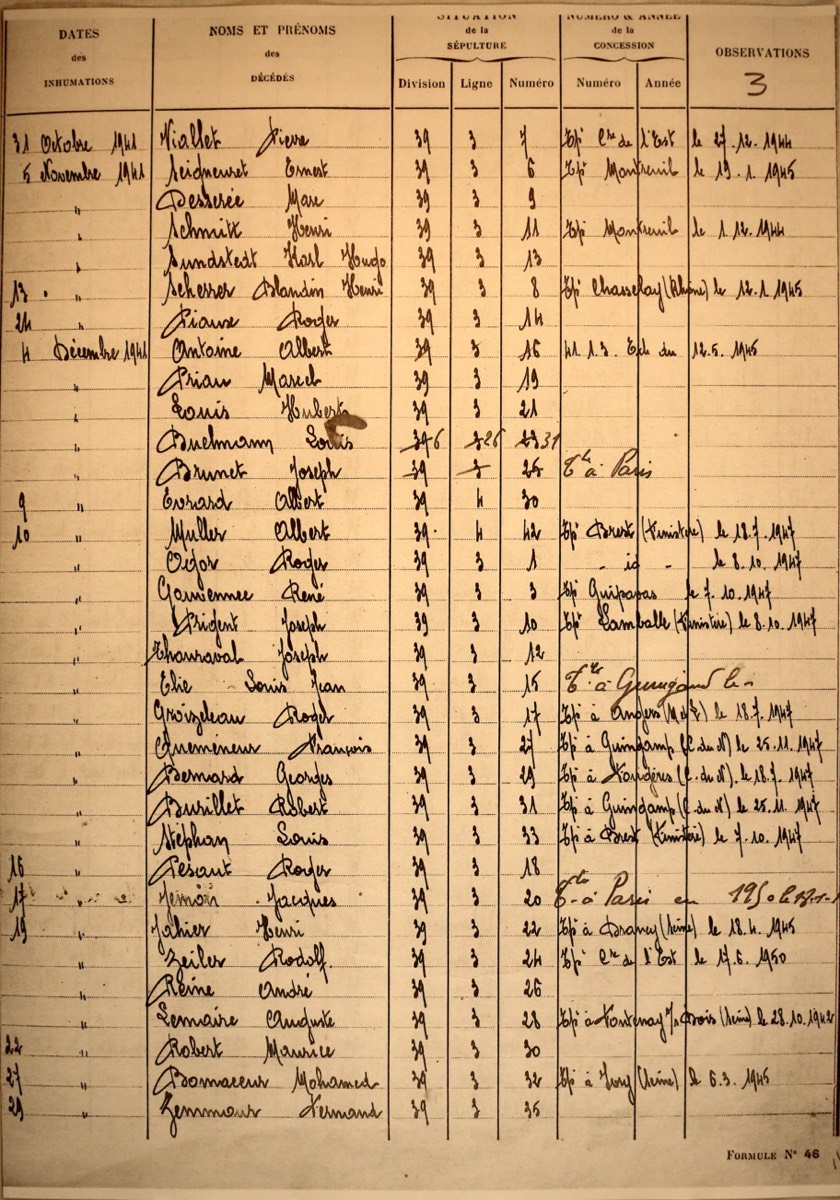 DATES des INHUMATIONS
NOMS ET PRÉNOMS des DÉCÉDÉS
SITUATION de la SÉPULTURE
NUMÉRO & ANNÉE de la CONCESSION
OBSERVATIONS
3
Division Ligne Numéro Numéro Année
31 Octobre 1941 Viallet Pierre 39 3 7 Tpé Cre de l'Est le 27.12.1944
5 Novembre 1941 Seigneuret Ernest 39 3 6 Tpé Montreuil le 19.1.1945
" Desserée Marc 39 3 9
" Schmitt Henri 39 3 11 Tpé Montreuil le 1.12.1944
" Sundstedt Karl Hugo 39 3 13
13 " Scherrer Blandin Henri 39 3 8 Tpé Chasselay (Rhône) le 12.1.1945
24 " Piause Roger 39 3 14
4 Décembre 1941 Antoine Albert 39 3 16 41.1.3. Ech du 12.5.1945
" Priau Marcel 39 3 19
" Louis Hubert 39 3 21
" Buelmann Louis 39 6 3 26 23 31
" Brunet Joseph 39 3 25 à Paris
9 " Evrard Albert 39 4 30
10 " Muller Albert 39 4 42 Tpé Brest (Finistère) le 18.7.1947
" Ogor Roger 39 3 1 - id - le 8.10.1947
" Gauvennec René 39 3 3 Tpé Guipavas le 7.10.1947
" Prigent Joseph 39 3 10 Tpé Lamballe (Finistère) le 8.10.1947
" Thouraval Joseph 39 3 12
" Elie Louis Jean 39 3 15 à Guingand le -
" Groizeleau Roger 39 3 17 Tpé à Angers (M et L) le 18.7.1947
" Queméneur François 39 3 27 Tpé à Guingamp (C. du N) le 25.11.1947
" Bernard Georges 39 3 29 Tpé à Fougères (C. du N). le 18.7.1947
" Burillet Robert 39 3 31 Tpé à Guingamp (C. du N) le 25.11.1947
" Stéphan Louis 39 3 33 Tpé à Brest (Finistère) le 7.10.1947
16 " Pesaut Roger 39 3 18
17 " Jacques 39 3 20 à Paris en 1950
19 " Jahier Henri 39 3 22 Tpé à Drancy (Seine) le 18.4.1945
" Zeiler Rodolf. 39 3 24 Tpé Cre de l'Est le 17.6.1950
" Reine André 39 3 26
" Lemaire Auguste 39 3 28 Tpé à Fontenay s/s Bois (Seine) le 28.10.1942
22 " Robert Maurice 39 3 30
27 " Bomaceur Mohamed 39 3 32 Tpé à Ivry (Seine) le 6.3.1945
29 " Zemmour Fernand 39 3 35
FORMULE N° 46